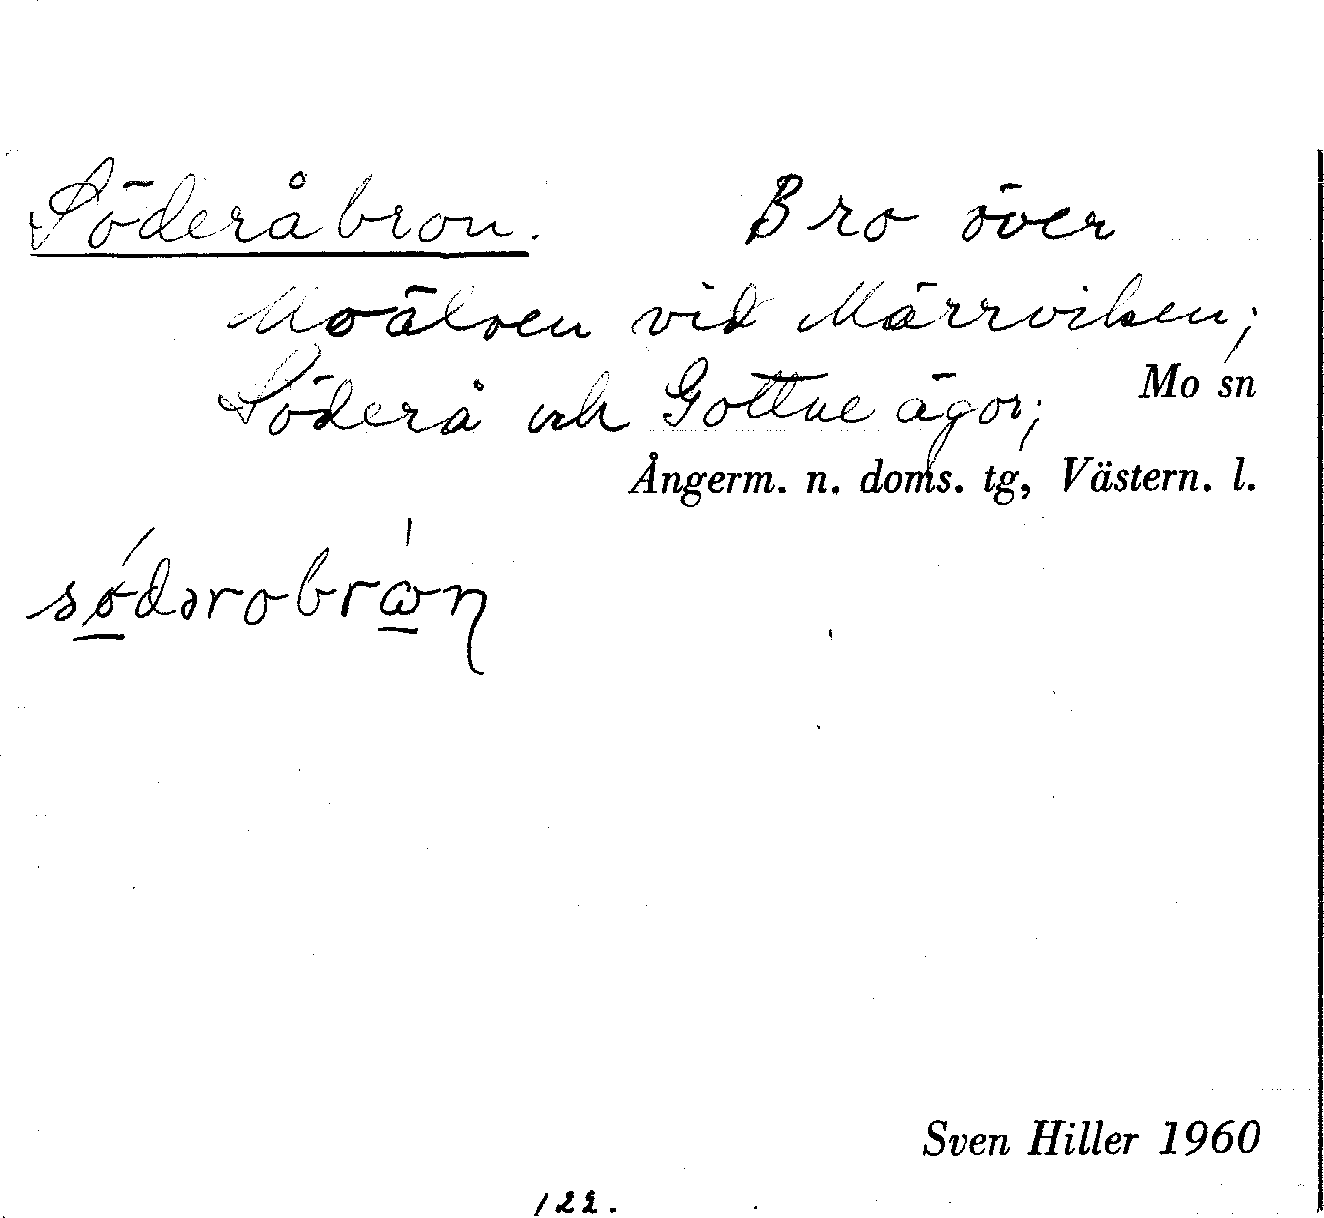 Söderåbron. Bro över
Moälven vid Märrviken;
Söderå och Gottne ägor;
Mo sn
Ångerm. n. doms. tg, Västern. l.
södərobrωn
Sven Hiller 1960
122.